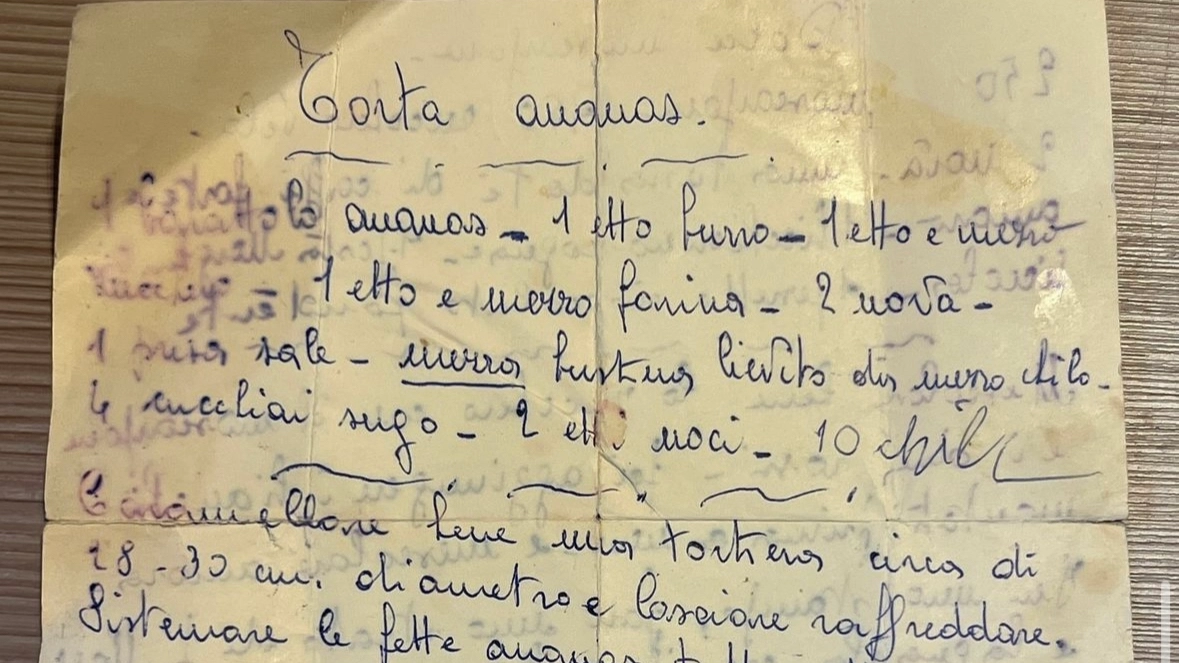 Torta ananas.
1 barattolo ananas - 1 etto burro - 1 etto e mezzo
zucchero - 1 etto e mezzo farina - 2 uova -
1 presa sale - mezza bustina lievito da mezzo chilo -
4 cucchiai sugo - 2 etti noci - 10
Caramellare bene una tortiera circa di
28 - 30 cm. diametro e lasciare raffreddare.
Sistemare le fette ananas